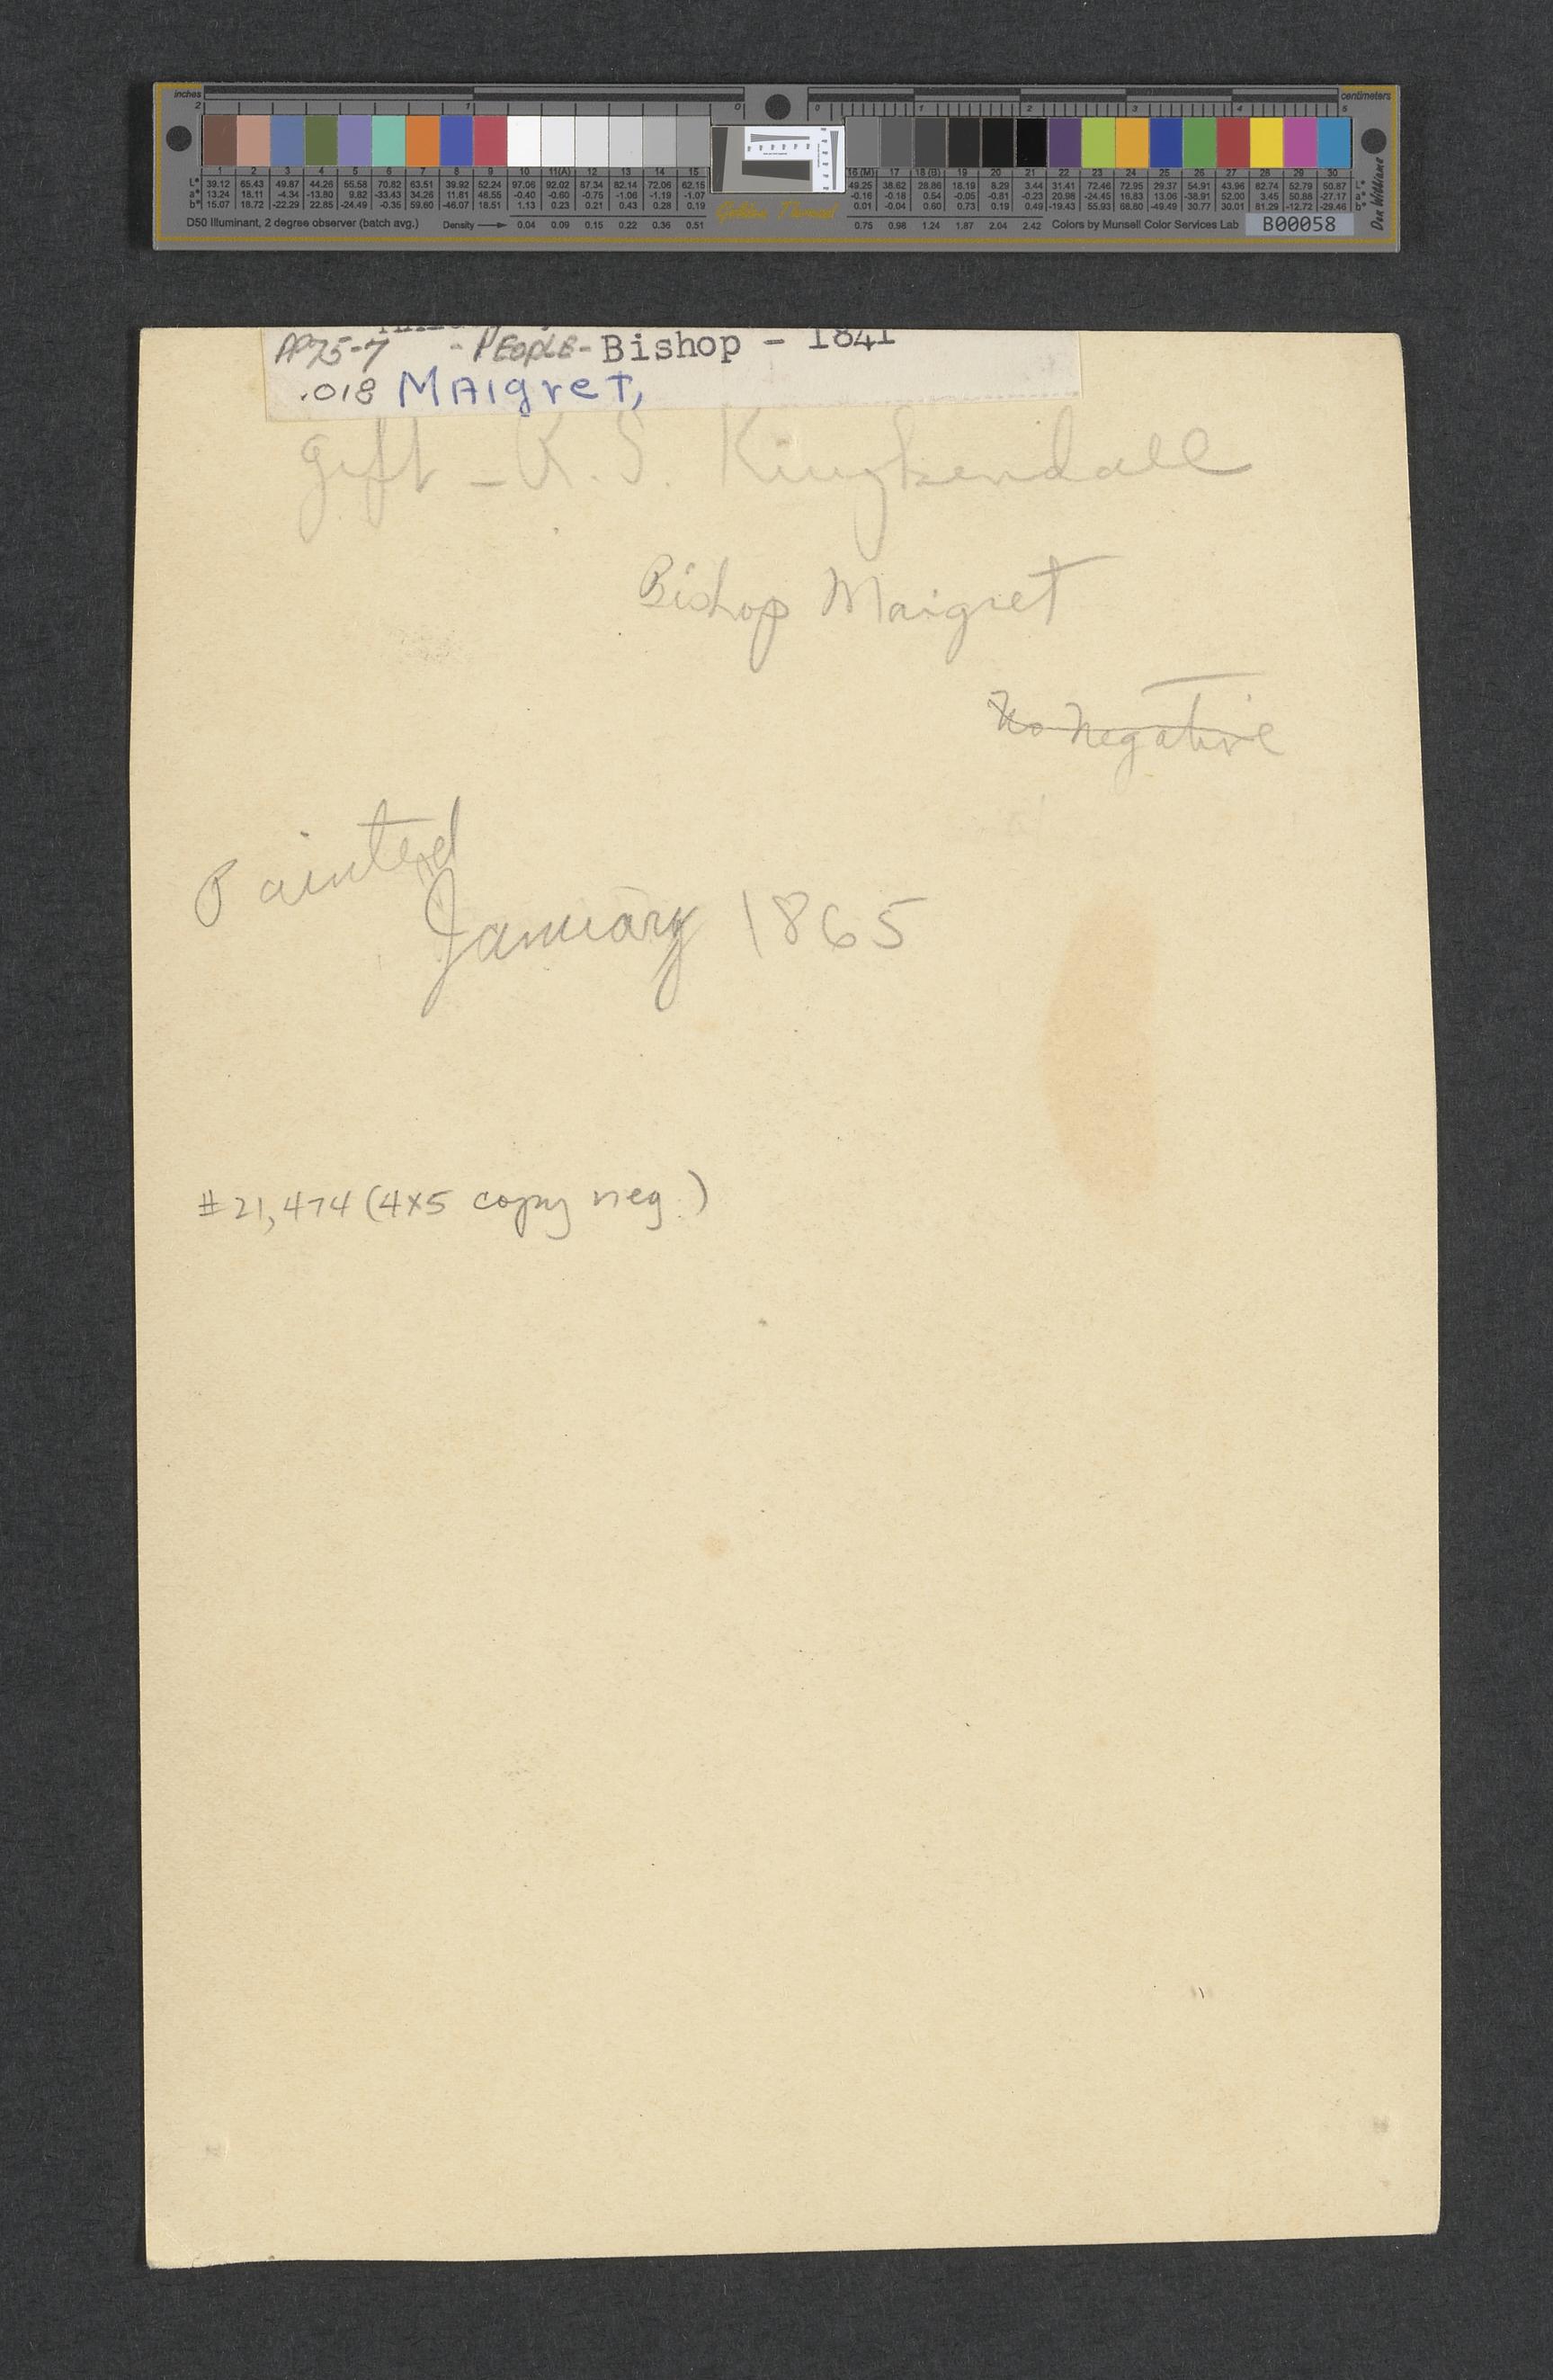 inches
centimeters
2 1 0 0 1 2 3 4 5
1 2 3 4 5 6 7 8 9 10 11(A) 12 13 14 15 16 (M) 17 18 (B) 19 20 21 22 23 24 25 26 27 28 29 30
L* 39.12 65.43 49.87 44.26 55.58 70.82 63.51 39.92 52.24 97.06 92.02 87.34 82.14 72.06 62.15 49.25 38.62 28.86 16.19 8.29 3.44 31.41 72.46 72.95 29.37 54.91 43.96 82.74 52.79 50.87 L*
a* 13.24 18.11 -4.34 -13.80 9.82 -33.43 34.26 11.81 48.55 -0.40 -0.60 -0.75 -1.06 -1.19 -1.07 -0.16 -0.18 0.54 -0.05 -0.81 -0.23 20.98 -24.45 16.83 13.06 -38.91 52.00 3.45 50.88 -27.17 a*
b* 15.07 18.72 -22.29 22.85 -24.49 -0.35 59.60 -46.07 18.51 1.13 0.23 0.21 0.43 0.28 0.19 0.01 -0.04 0.60 0.73 0.19 0.49 -19.43 55.93 68.80 -49.49 30.77 30.01 81.29 -12.72 -29.46 b*
D50 Illuminant, 2 degree observer (batch avg.) Density 0.04 0.09 0.15 0.22 0.36 0.51 Golden Thread 0.75 0.98 1.24 1.87 2.04 2.42 Colors by Munsell Color Services Lab B00058
Don Williams
PP75-7 - PEOPLE - Bishop - 1841
.018 MAIgreT,
Gift - R. S. Kuykendall
Bishop Maigret
No Negative
Painted
January 1865
# 21,474 (4x5 copy neg.)